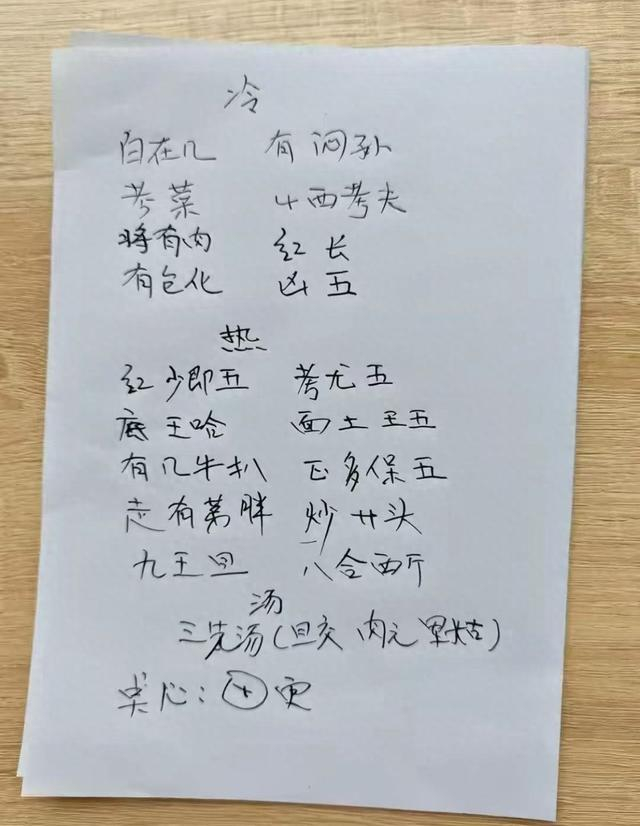 冷
白在几 有闷孙
考菜 4西考夫
将有肉 红长
有包化 凶五
热
红少即五 考尤五
底王哈 面土王五
有几牛扒 正多保五
志有第胖 炒廿头
九王旦 八合西斤
汤
三先汤(旦交 肉元 果古)
桌心: 十更